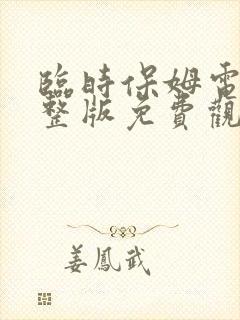 臨時保姆電
整版免費觀
姜鳳武